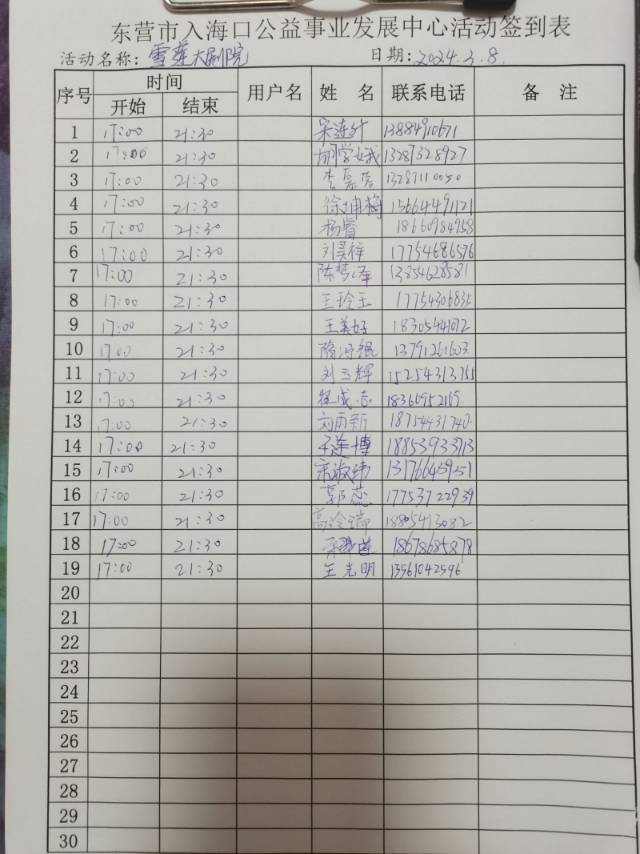 东营市入海口公益事业发展中心活动签到表
活动名称：雪莲大剧院 日期：2024.3.8.
序号 时间 用户名 姓 名 联系电话 备 注
开始 结束
1 17:00 21:30 13884910671
2 17:00 21:30 胡学娥 13287328927
3 17:00 21:30
4 17:00 21:30 徐坤梅 15664491121
5 17:00 21:30 杨曾 18660984958
6 17:00 21:30 刘昊梓 17754686576
7 17:00 21:30 陈梦泽 13854628581
8 17:00 21:30 王玲玉 17754306835
9 17:00 21:30 王美好 18305441072
10 17:00 21:30 13791261603
11 17:00 21:30 刘玉辉 15254313765
12 17:00 21:30 18366952169
13 17:00 21:30 刘雨新 18754431740
14 17:00 21:30 18853933713
15 17:00 21:30 宋淑纬 13176645951
16 17:00 21:30 郭蕊 17753722939
17 17:00 21:30 18805413082
18 17:00 21:30 18678685878
19 17:00 21:30 王光明 13561042596
20
21
22
23
24
25
26
27
28
29
30